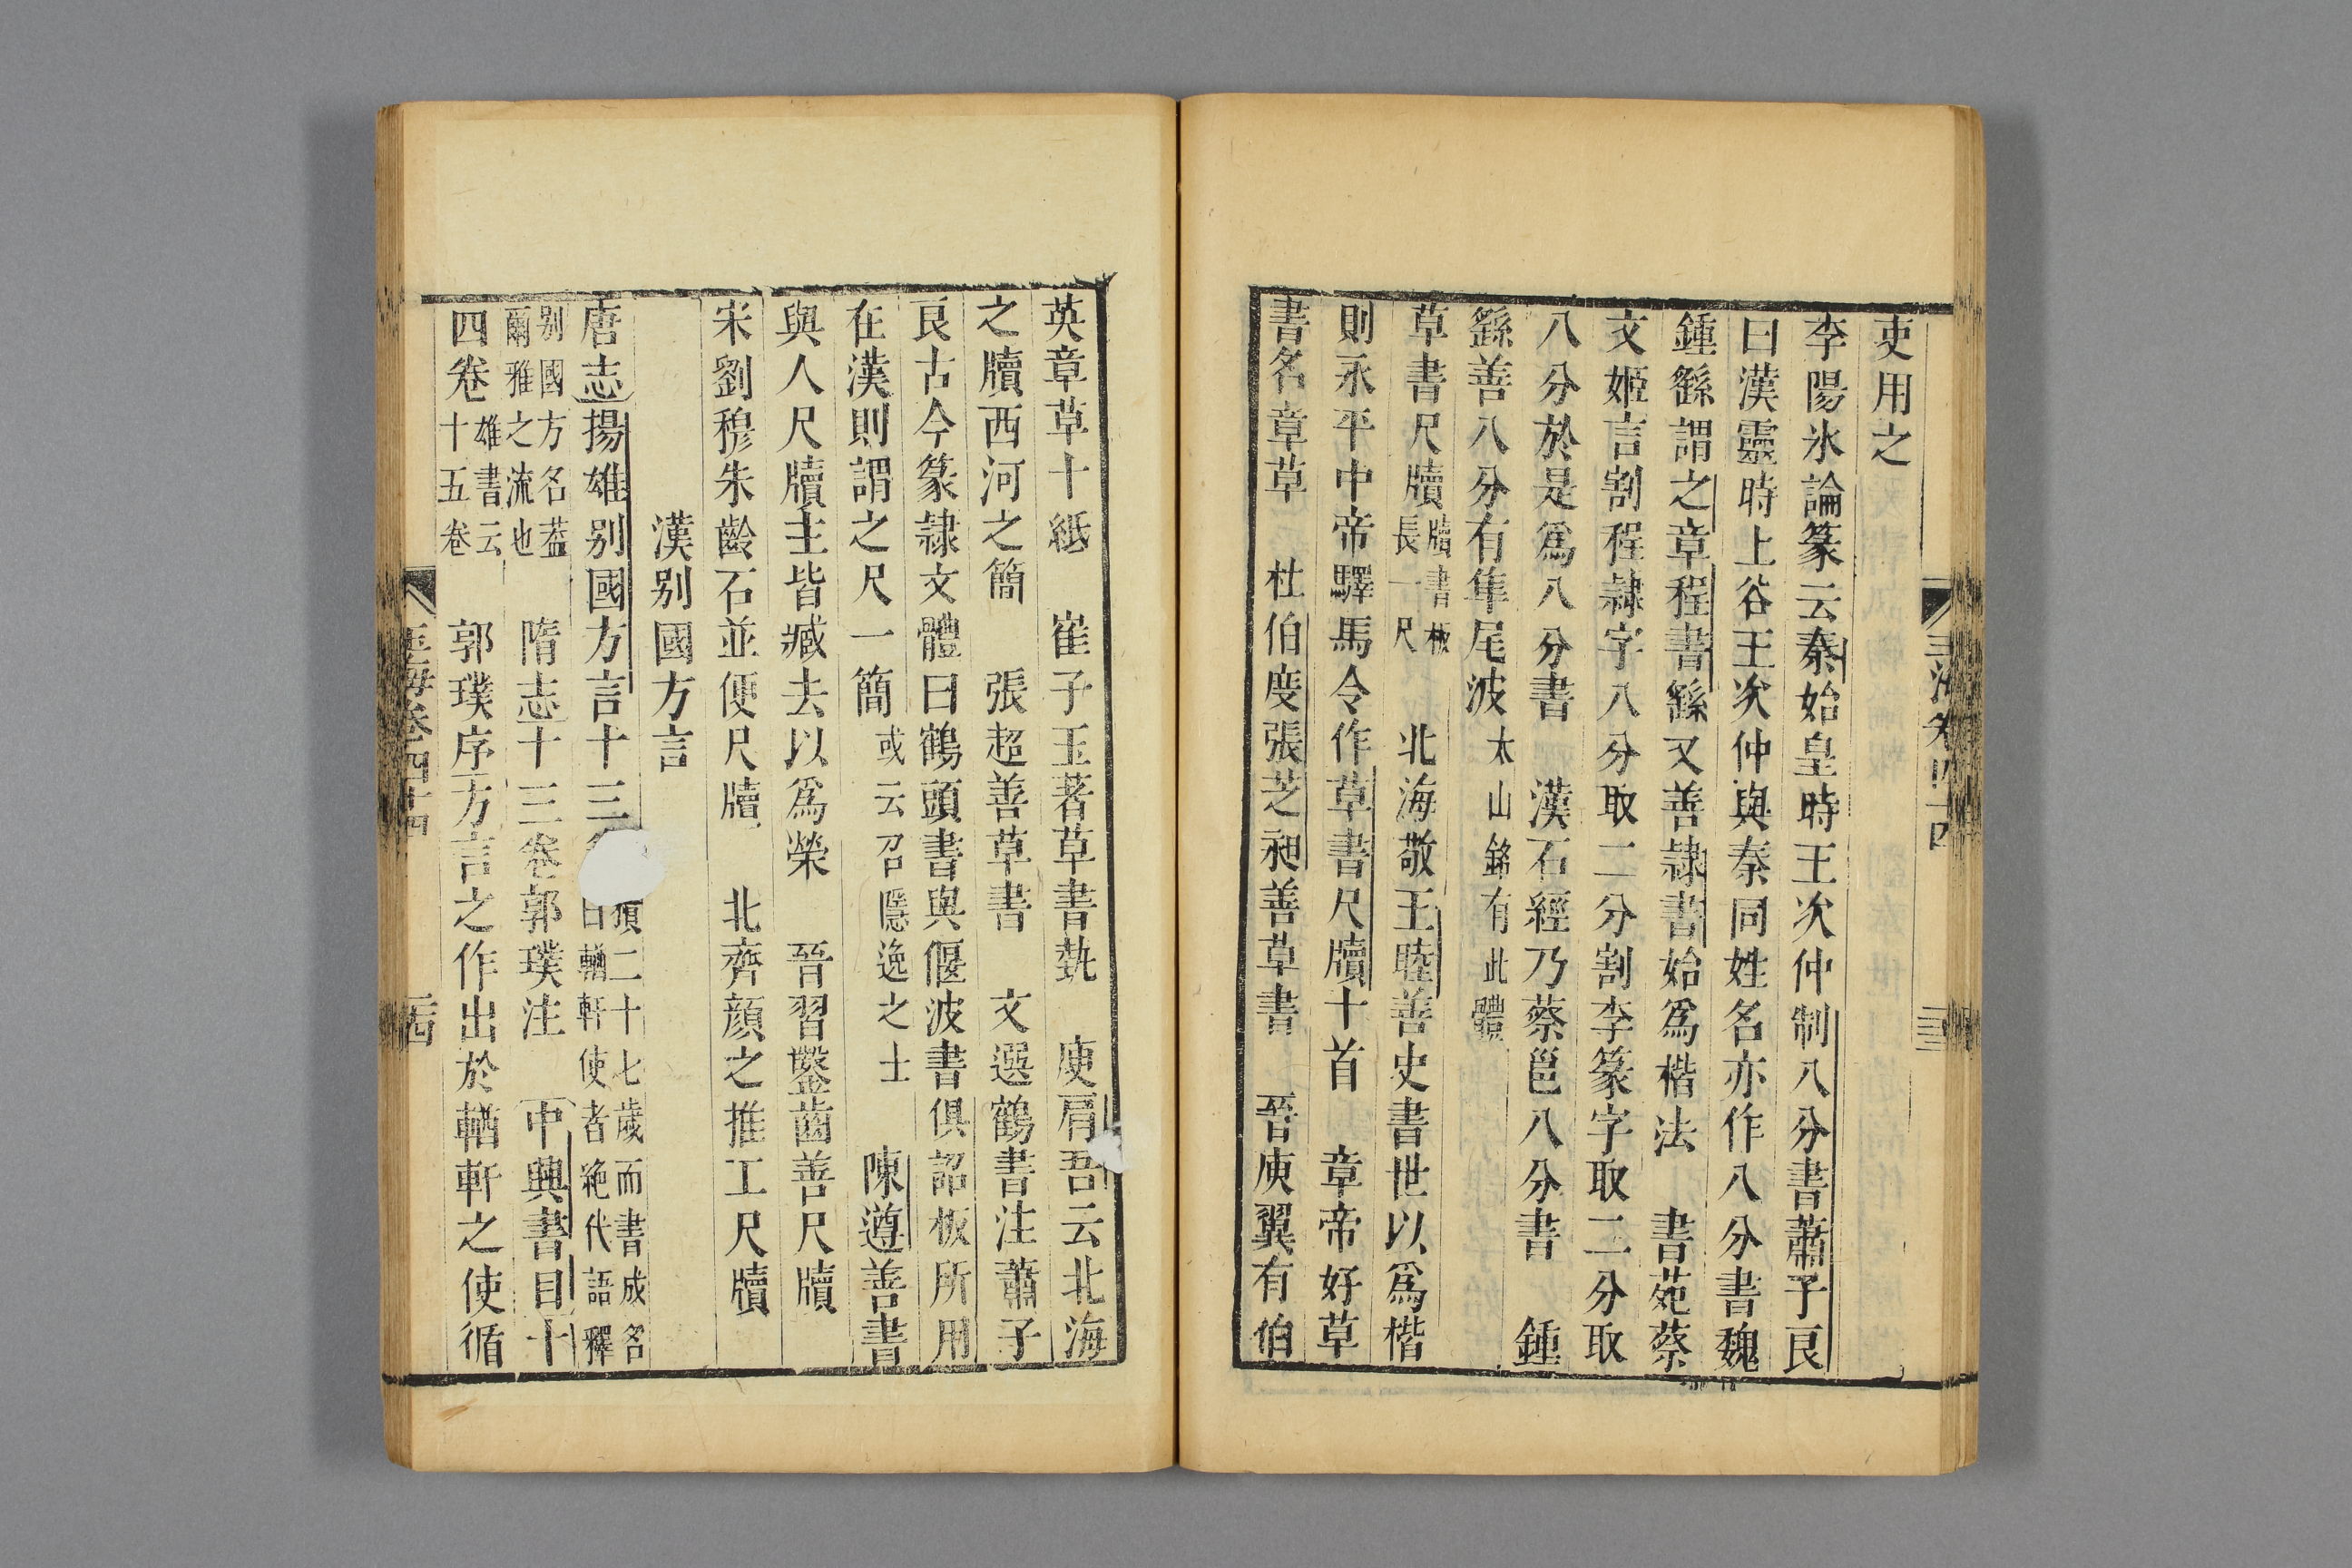 吏用之
李陽氷論篆云秦始皇時王次仲制八分書蕭子良
曰漢靈時上谷王次仲與秦同姓名亦作八分書魏
鍾繇謂之章程書繇又善隷書始爲楷法　書苑蔡
文姬言割程隷字八分取二分割李篆字取二分取
八分於是爲八分書　漢石經乃蔡邕八分書　鍾
繇善八分有隼尾波太山銘有此體
草書尺牘牘書板長一尺　北海敬王睦善史書世以爲楷
則永平中帝驛馬令作草書尺牘十首　章帝好草
書名章草　杜伯度張芝昶善草書　晉庾翼有伯
玉海卷四十四
英章草十紙　崔子玉著草書埶　庾肩吾云北海
之牘西河之簡　張超善草書　文選鶴書注蕭子
良古今篆隷文體曰鶴頭書與偃波書俱詔板所用
在漢則謂之尺一簡或云召隱逸之士　陳遵善書
與人尺牘主皆臧去以爲榮　晉習鑿齒善尺牘
宋劉穆朱齡石並便尺牘　北齊顔之推工尺牘
漢别國方言
唐志揚雄别國方言十三二十七歲而書成名曰輶軒使者絶代語釋
别國方名葢爾雅之流也　隋志十三卷郭璞注　中興書目十
四卷雄書云十五卷　郭璞序方言之作出於輶軒之使循
玉海卷四十四